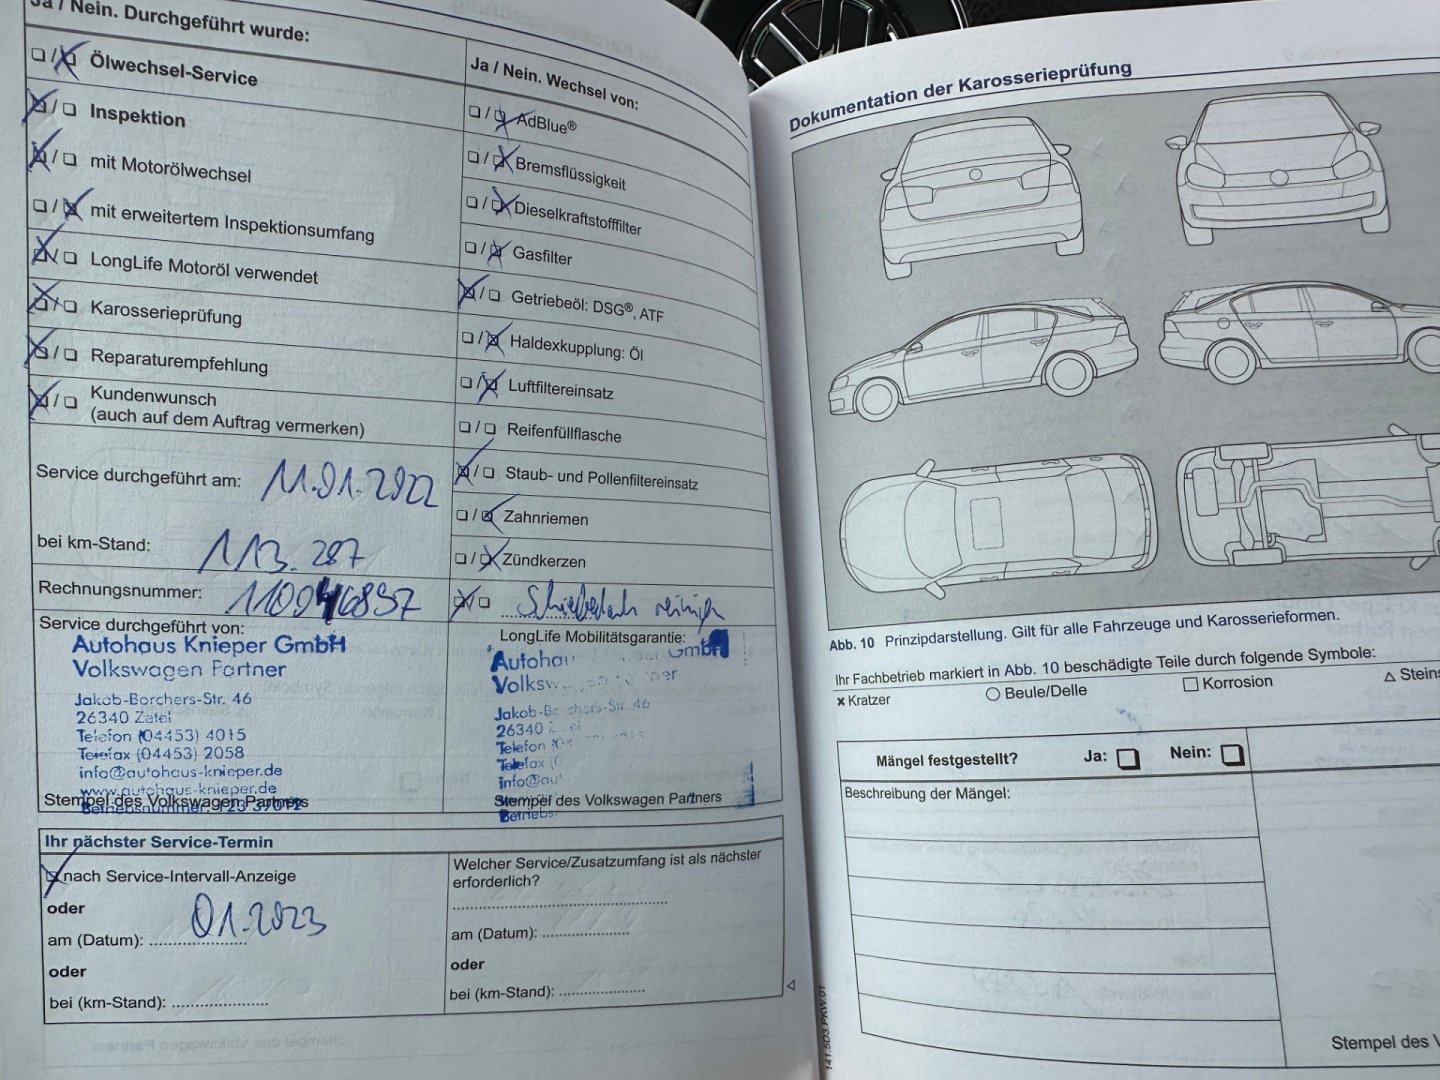 Ja / Nein. Durchgeführt wurde:
❏ / ☒ Ölwechsel-Service
☒ / ❏ Inspektion
☒ / ❏ mit Motorölwechsel
❏ / ☒ mit erweitertem Inspektionsumfang
☒ / ❏ LongLife Motoröl verwendet
☒ / ❏ Karosserieprüfung
☒ / ❏ Reparaturempfehlung
☒ / ❏ Kundenwunsch
(auch auf dem Auftrag vermerken)
Service durchgeführt am: 11.01.2022
bei km-Stand: 113.287
Rechnungsnummer:
Service durchgeführt von:
Autohaus Knieper GmbH
Volkswagen Partner
Jakob-Borchers-Str. 46
26340 Zetel
Telefon (04453) 4015
Telefax (04453) 2058
info@autohaus-knieper.de
www.autohaus-knieper.de
Stempel des Volkswagen Partners
Betriebsnummer:
Ja / Nein. Wechsel von:
❏ / ☒ AdBlue®
❏ / ☒ Bremsflüssigkeit
❏ / ☒ Dieselkraftstofffilter
❏ / ☒ Gasfilter
☒ / ❏ Getriebeöl: DSG®, ATF
❏ / ☒ Haldexkupplung: Öl
❏ / ☒ Luftfiltereinsatz
❏ / ❏ Reifenfüllflasche
☒ / ❏ Staub- und Pollenfiltereinsatz
❏ / ☒ Zahnriemen
❏ / ☒ Zündkerzen
☒ / ❏ Schiebedach reinigen
LongLife Mobilitätsgarantie:
Autohau GmbH
Volksw ner
Jakob-Bo chers-Str. 46
26340
Telefon (0
Telefax (0
info@au
Stempel des Volkswagen Partners
Betriebs
Ihr nächster Service-Termin
☒ nach Service-Intervall-Anzeige
oder
01.2023
am (Datum): ....................
oder
bei (km-Stand): ....................
Welcher Service/Zusatzumfang ist als nächster
erforderlich?
am (Datum): ....................
oder
bei (km-Stand): ....................
141.5D3.PKW.01
Dokumentation der Karosserieprüfung
Abb. 10 Prinzipdarstellung. Gilt für alle Fahrzeuge und Karosserieformen.
Ihr Fachbetrieb markiert in Abb. 10 beschädigte Teile durch folgende Symbole:
× Kratzer ○ Beule/Delle □ Korrosion △ Steins
Mängel festgestellt? Ja: ❏ Nein: ❏
Beschreibung der Mängel:
Stempel des V